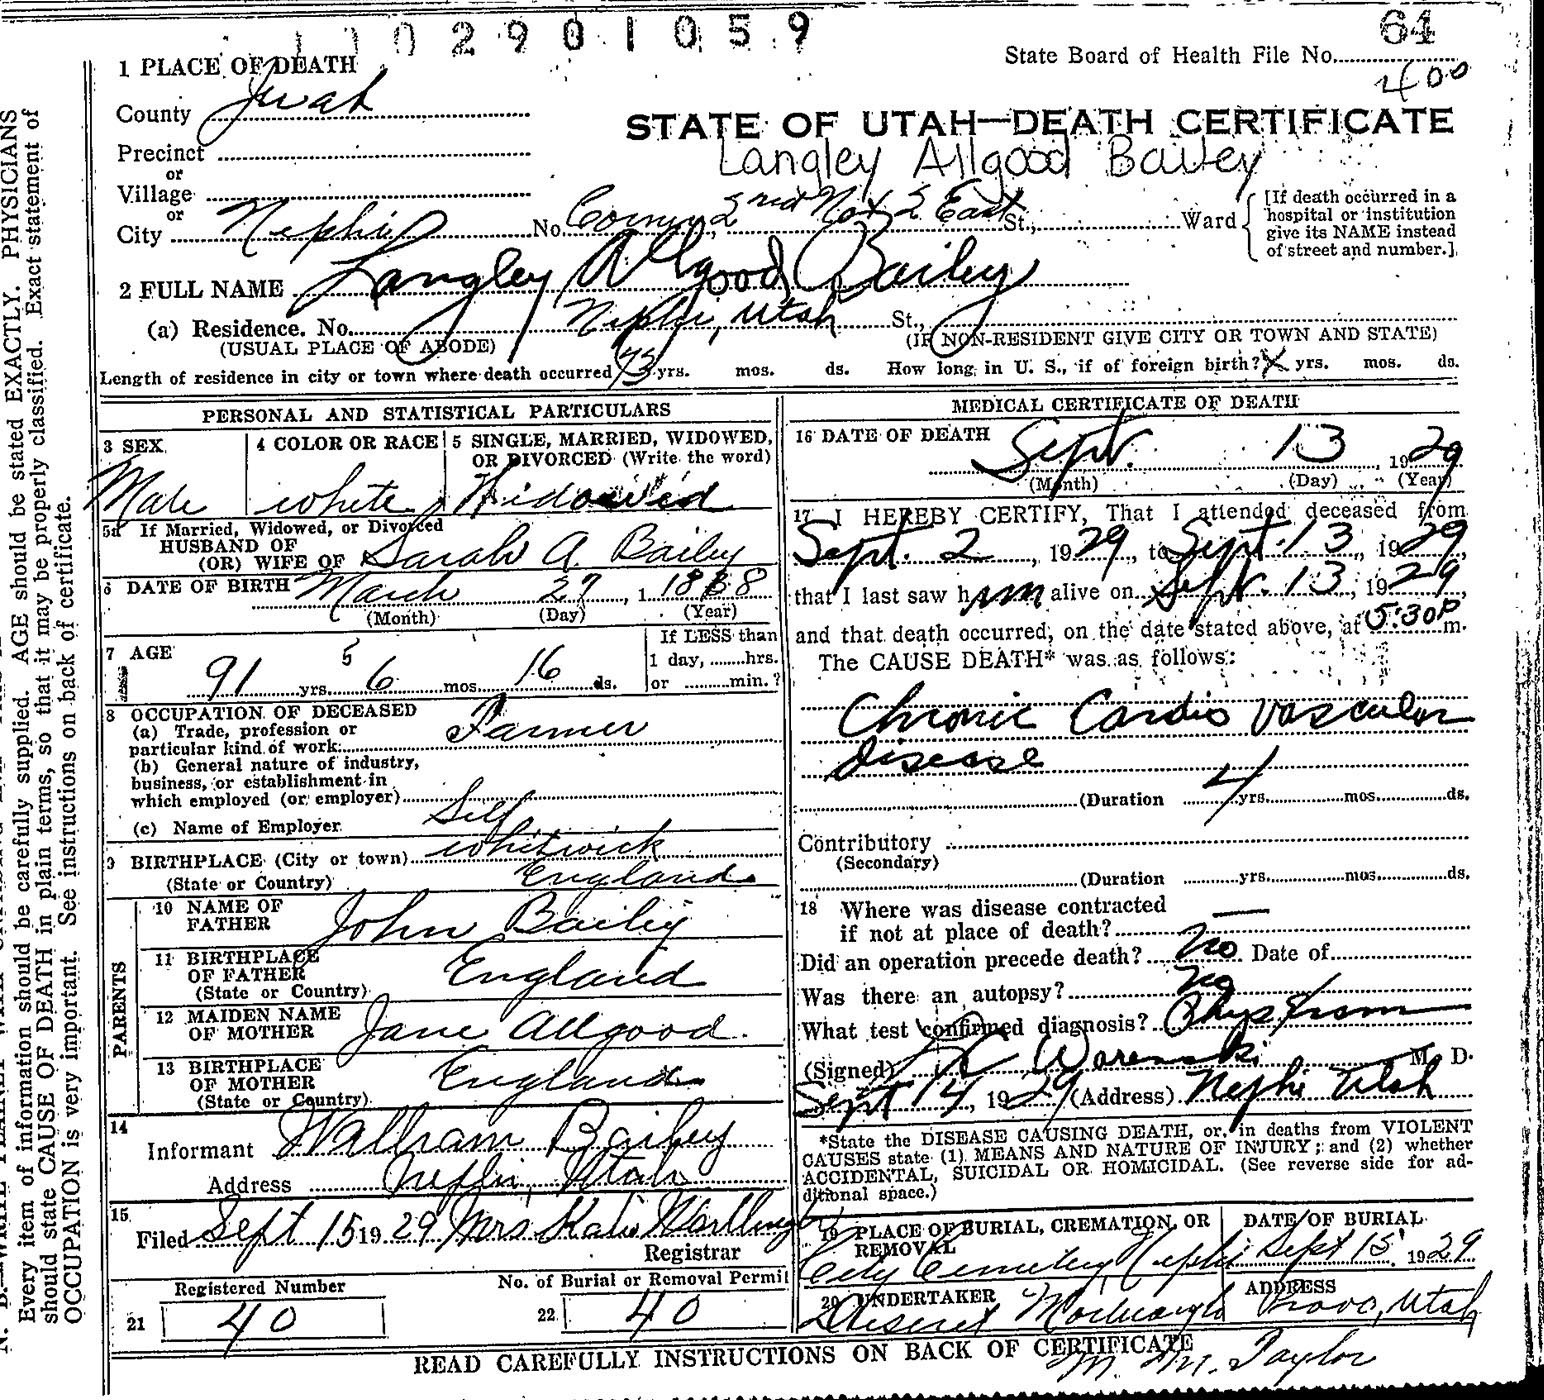 1 1 0 2 9 0 1 0 5 9
64
State Board of Health File No.
400
1 PLACE OF DEATH
County Juab
STATE OF UTAH—DEATH CERTIFICATE
Precinct
Langley Allgood Bailey
or
Village
or
City Nephi No. 2nd No & 2 East St., Ward
[If death occurred in a hospital or institution give its NAME instead of street and number.]
2 FULL NAME Langley Allgood Bailey
(a) Residence. No. Nephi, Utah St.,
(USUAL PLACE OF ABODE) (IF NON-RESIDENT GIVE CITY OR TOWN AND STATE)
Length of residence in city or town where death occurred 73 yrs. mos. ds. How long in U. S., if of foreign birth? X yrs. mos. ds.
PERSONAL AND STATISTICAL PARTICULARS
3 SEX 4 COLOR OR RACE 5 SINGLE, MARRIED, WIDOWED,
OR DIVORCED (Write the word)
Male white Widowed
5a If Married, Widowed, or Divorced
HUSBAND OF
(OR) WIFE OF Sarah A. Bailey
6 DATE OF BIRTH March 27, 1 1838
(Month) (Day) (Year)
7 AGE If LESS than
91 yrs. 5 6 mos. 16 ds. 1 day, ........hrs.
or .........min.?
8 OCCUPATION OF DECEASED
(a) Trade, profession or
particular kind of work: Farmer
(b) General nature of industry,
business, or establishment in
which employed (or employer)
(c) Name of Employer Self
9 BIRTHPLACE (City or town) Whitwick
(State or Country) England
PARENTS
10 NAME OF
FATHER John Bailey
11 BIRTHPLACE
OF FATHER England
(State or Country)
12 MAIDEN NAME
OF MOTHER Jane Allgood
13 BIRTHPLACE
OF MOTHER England
(State or Country)
14
Informant William Bailey
Address Nephi, Utah
15
Filed Sept 15 1929 Mrs Katie
Registrar
Registered Number No. of Burial or Removal Permit
21 40 22 40
MEDICAL CERTIFICATE OF DEATH
16 DATE OF DEATH
Sept. 13, 1929
(Month) (Day) (Year)
17 I HEREBY CERTIFY, That I attended deceased from
Sept. 2, 1929, to Sept. 13, 1929,
that I last saw him alive on Sept. 13, 1929
and that death occurred, on the date stated above, at 5:30 P m.
The CAUSE DEATH* was as follows:
Chronic Cardio vascular
disease
(Duration 4 yrs. mos. ds.
Contributory
(Secondary)
(Duration yrs. mos. ds.
18 Where was disease contracted
if not at place of death? —
Did an operation precede death? No Date of
Was there an autopsy? No
What test confirmed diagnosis?
(Signed) M. D.
Sept 14, 1929 (Address) Nephi Utah
*State the DISEASE CAUSING DEATH, or, in deaths from VIOLENT
CAUSES state (1) MEANS AND NATURE OF INJURY; and (2) whether
ACCIDENTAL, SUICIDAL OR HOMICIDAL. (See reverse side for ad-
ditional space.)
19 PLACE OF BURIAL, CREMATION, OR DATE OF BURIAL
REMOVAL
City Cemetery, Nephi Sept 15 1929
20 UNDERTAKER ADDRESS
Deseret Mortuary Provo, Utah
READ CAREFULLY INSTRUCTIONS ON BACK OF CERTIFICATE
M. Taylor
Every item of information should be carefully supplied. AGE should be stated EXACTLY. PHYSICIANS
should state CAUSE OF DEATH in plain terms, so that it may be properly classified. Exact statement of
OCCUPATION is very important. See instructions on back of certificate.